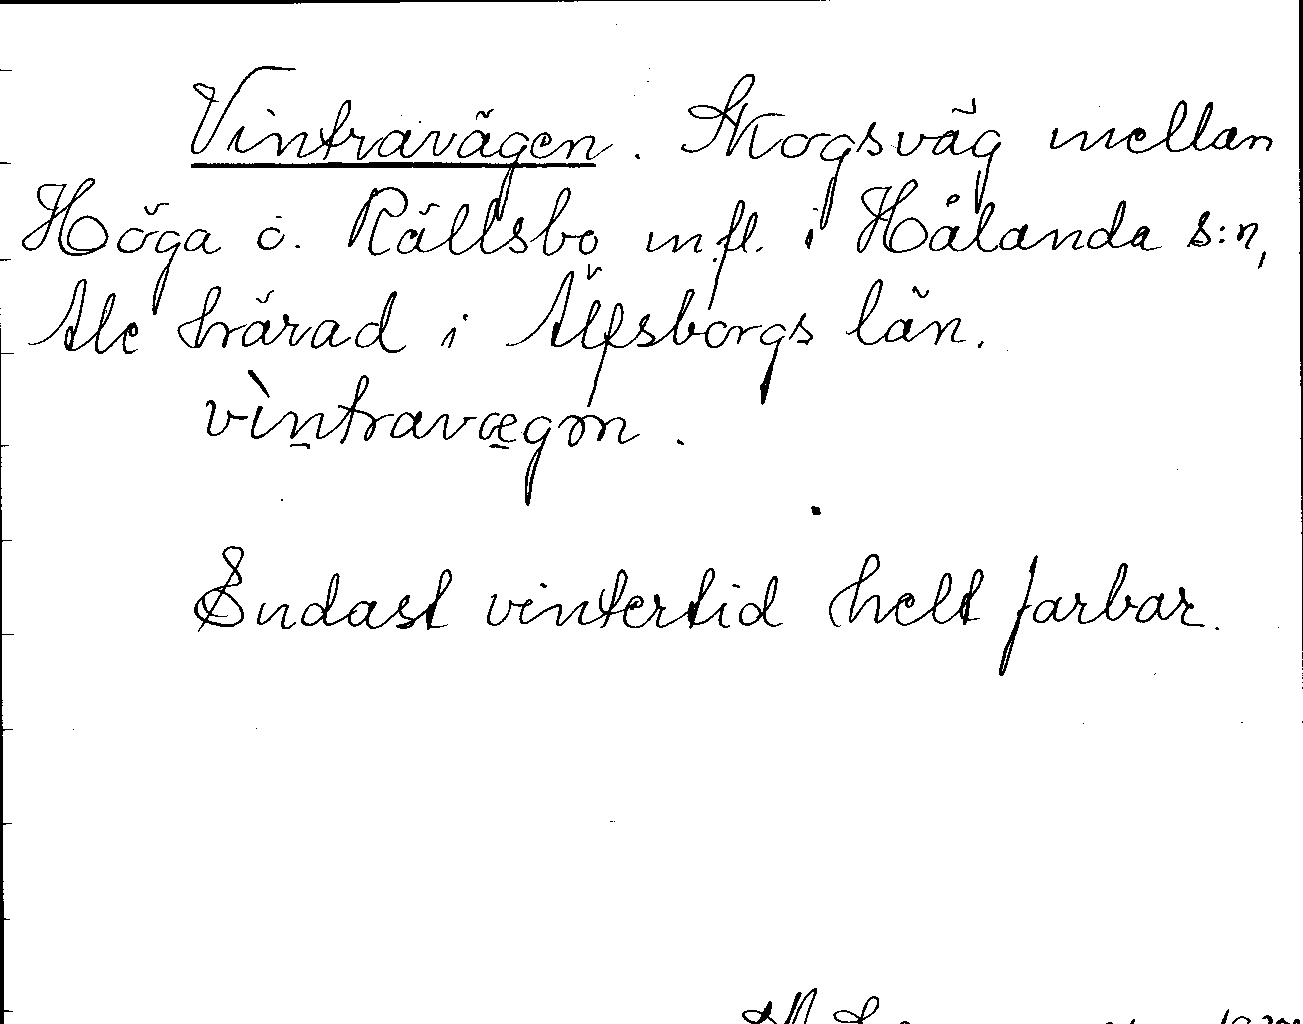 Vintravägen. Skogsväg mellan
Höga o. Rällsbo m.fl. i Hålanda s:n,
Ale härad i Älfsborgs län.
vìntravægən.
Endast vintertid helt farbar.